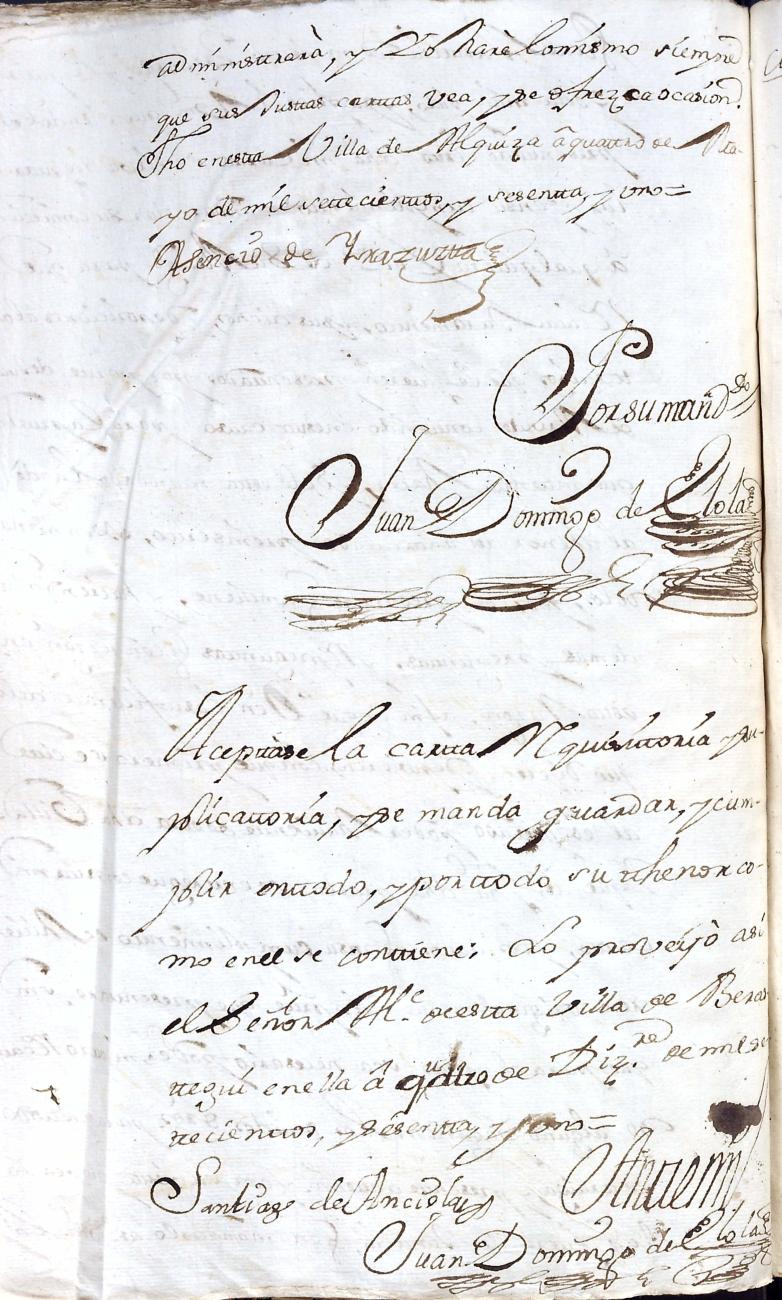 administtrarà, y Lo harè Lo mismo siempre
que sus Justtas carttas vea, y se ofrezca ocasion.
Fho en estta Villa de Alquiza â quattro de
yo de mil settecienttos, y sesentta, y uno=
Asencio de Yrazuztta
Por su mandº
Juan Domingo de Elola
Acepttase la cartta Rquisittoria y su-
plicattoria, y se manda guardar, y cum-
plir en ttodo, y por ttodo su tthenor co-
mo en el se conttiene; Lo proveyò asi
el Señor Alce de estta Villa de Beras
ttegui en ella â quatro de Dizre de mil se
ttecienttos, y sesentta, y uno=
Santiago de Anciola
Antte mi
Juan Domingo de Elola